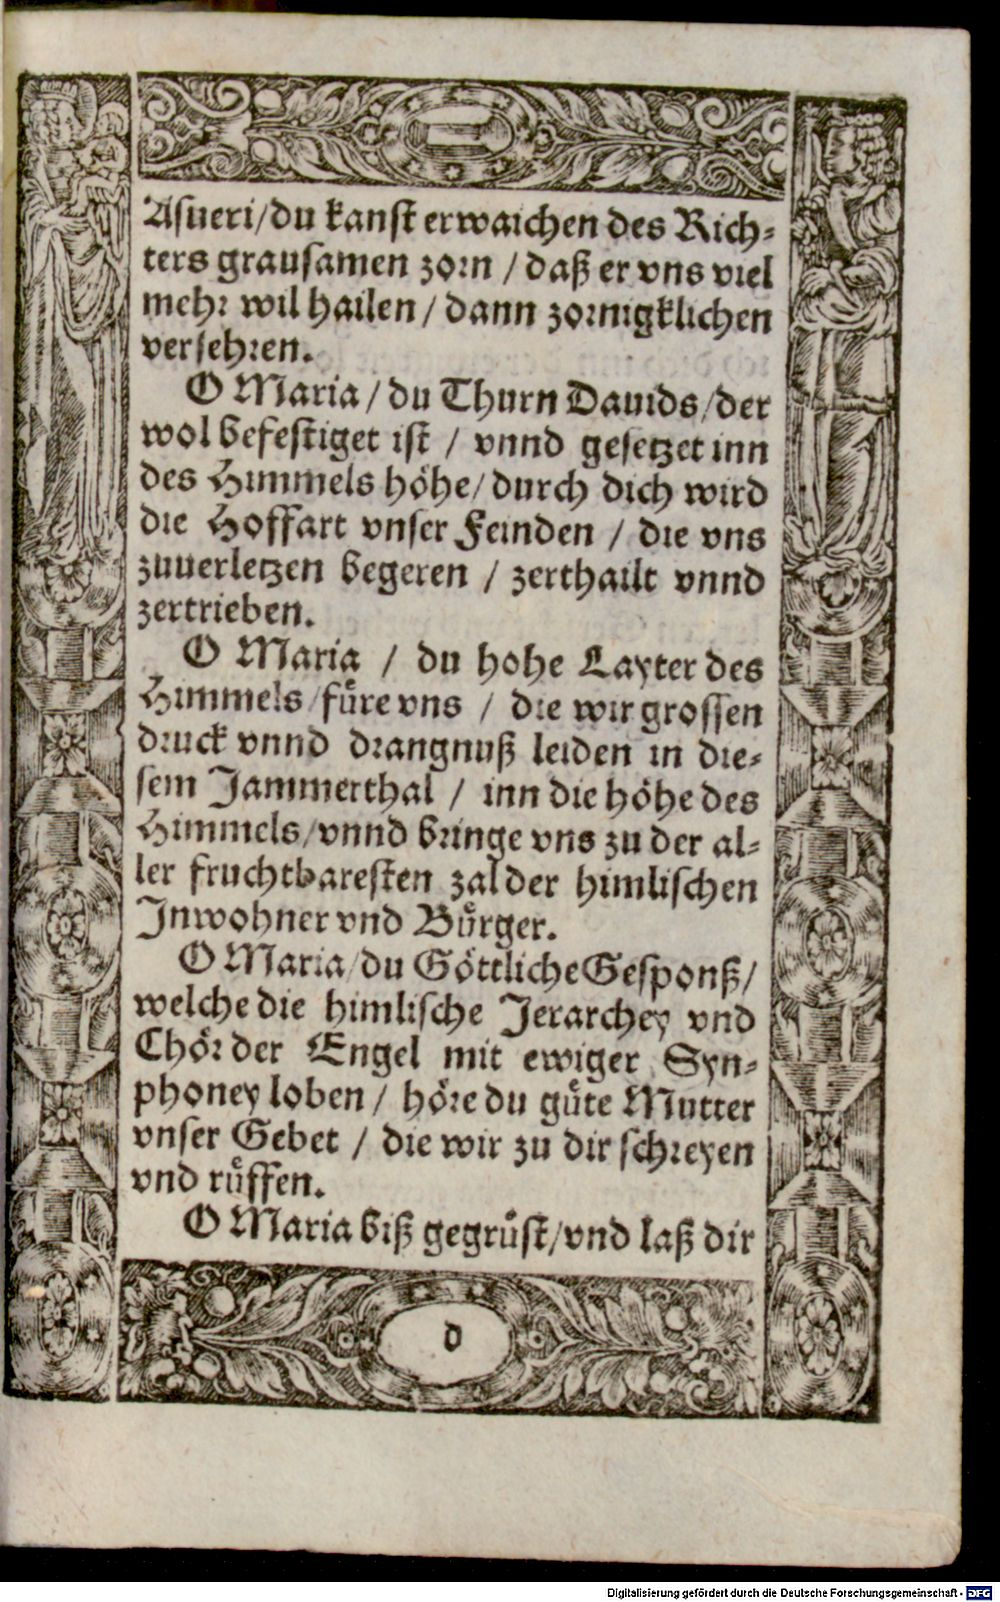 Asueri/du kanst erwaichen des Rich-
ters grausamen zorn / daß er vns viel
mehr wil hailen / dann zornigklichen
versehren.
O Maria / du Thurn Dauids/der
wol befestiget ist / vnnd gesetzet inn
des Himmels höhe/durch dich wird
die Hoffart vnser Feinden / die vns
zuuerletzen begeren / zerthailt vnnd
zertrieben.
O Maria / du hohe Layter des
Himmels/füre vns / die wir grossen
druck vnnd drangnuß leiden in die-
sem Jammerthal / inn die höhe des
Himmels/vnnd bringe vns zu der al-
ler fruchtbaresten zal der himlischen
Inwohner vnd Bürger.
O Maria/du Göttliche Gesponß/
welche die himlische Jerarchey vnd
Chör der Engel mit ewiger Syn-
phoney loben / höre du güte Mutter
vnser Gebet / die wir zu dir schreyen
vnd rüffen.
O Maria biß gegrüst/vnd laß dir
d
Digitalisierung gefördert durch die Deutsche Forschungsgemeinschaft - DFG